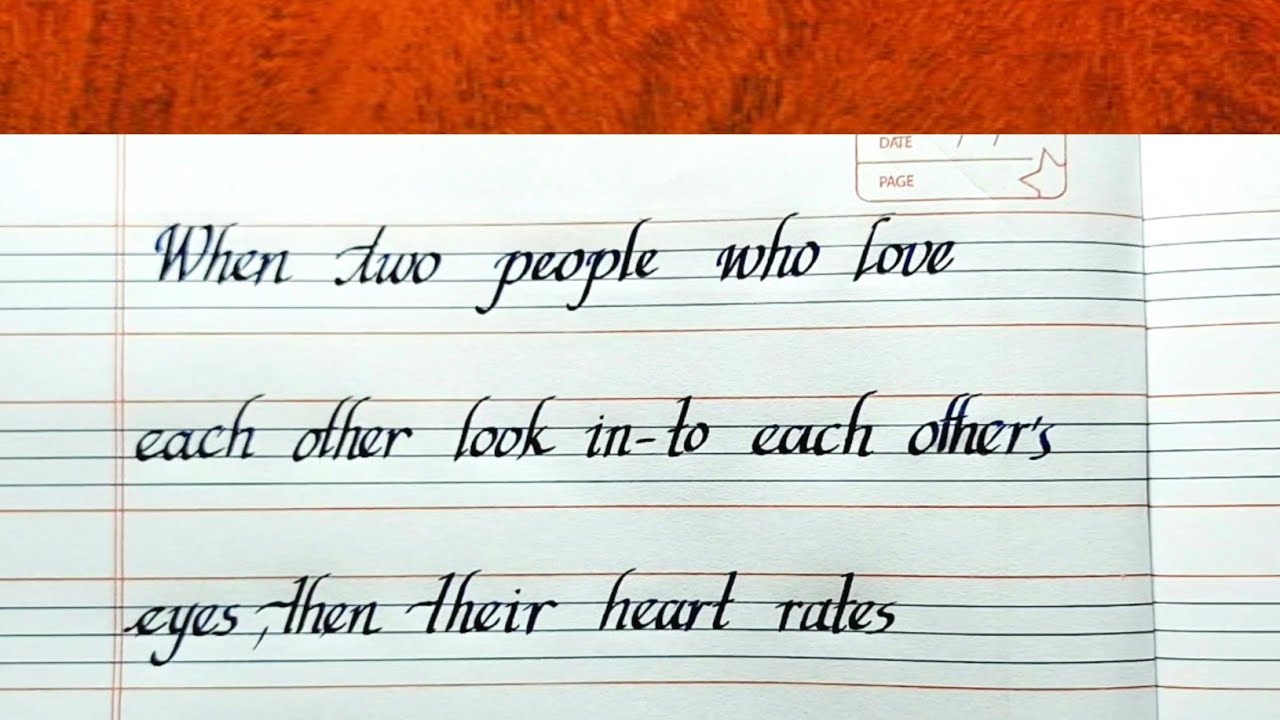 DATE / /
PAGE
When two people who love
each other look in-to each other's
eyes, then their heart rates